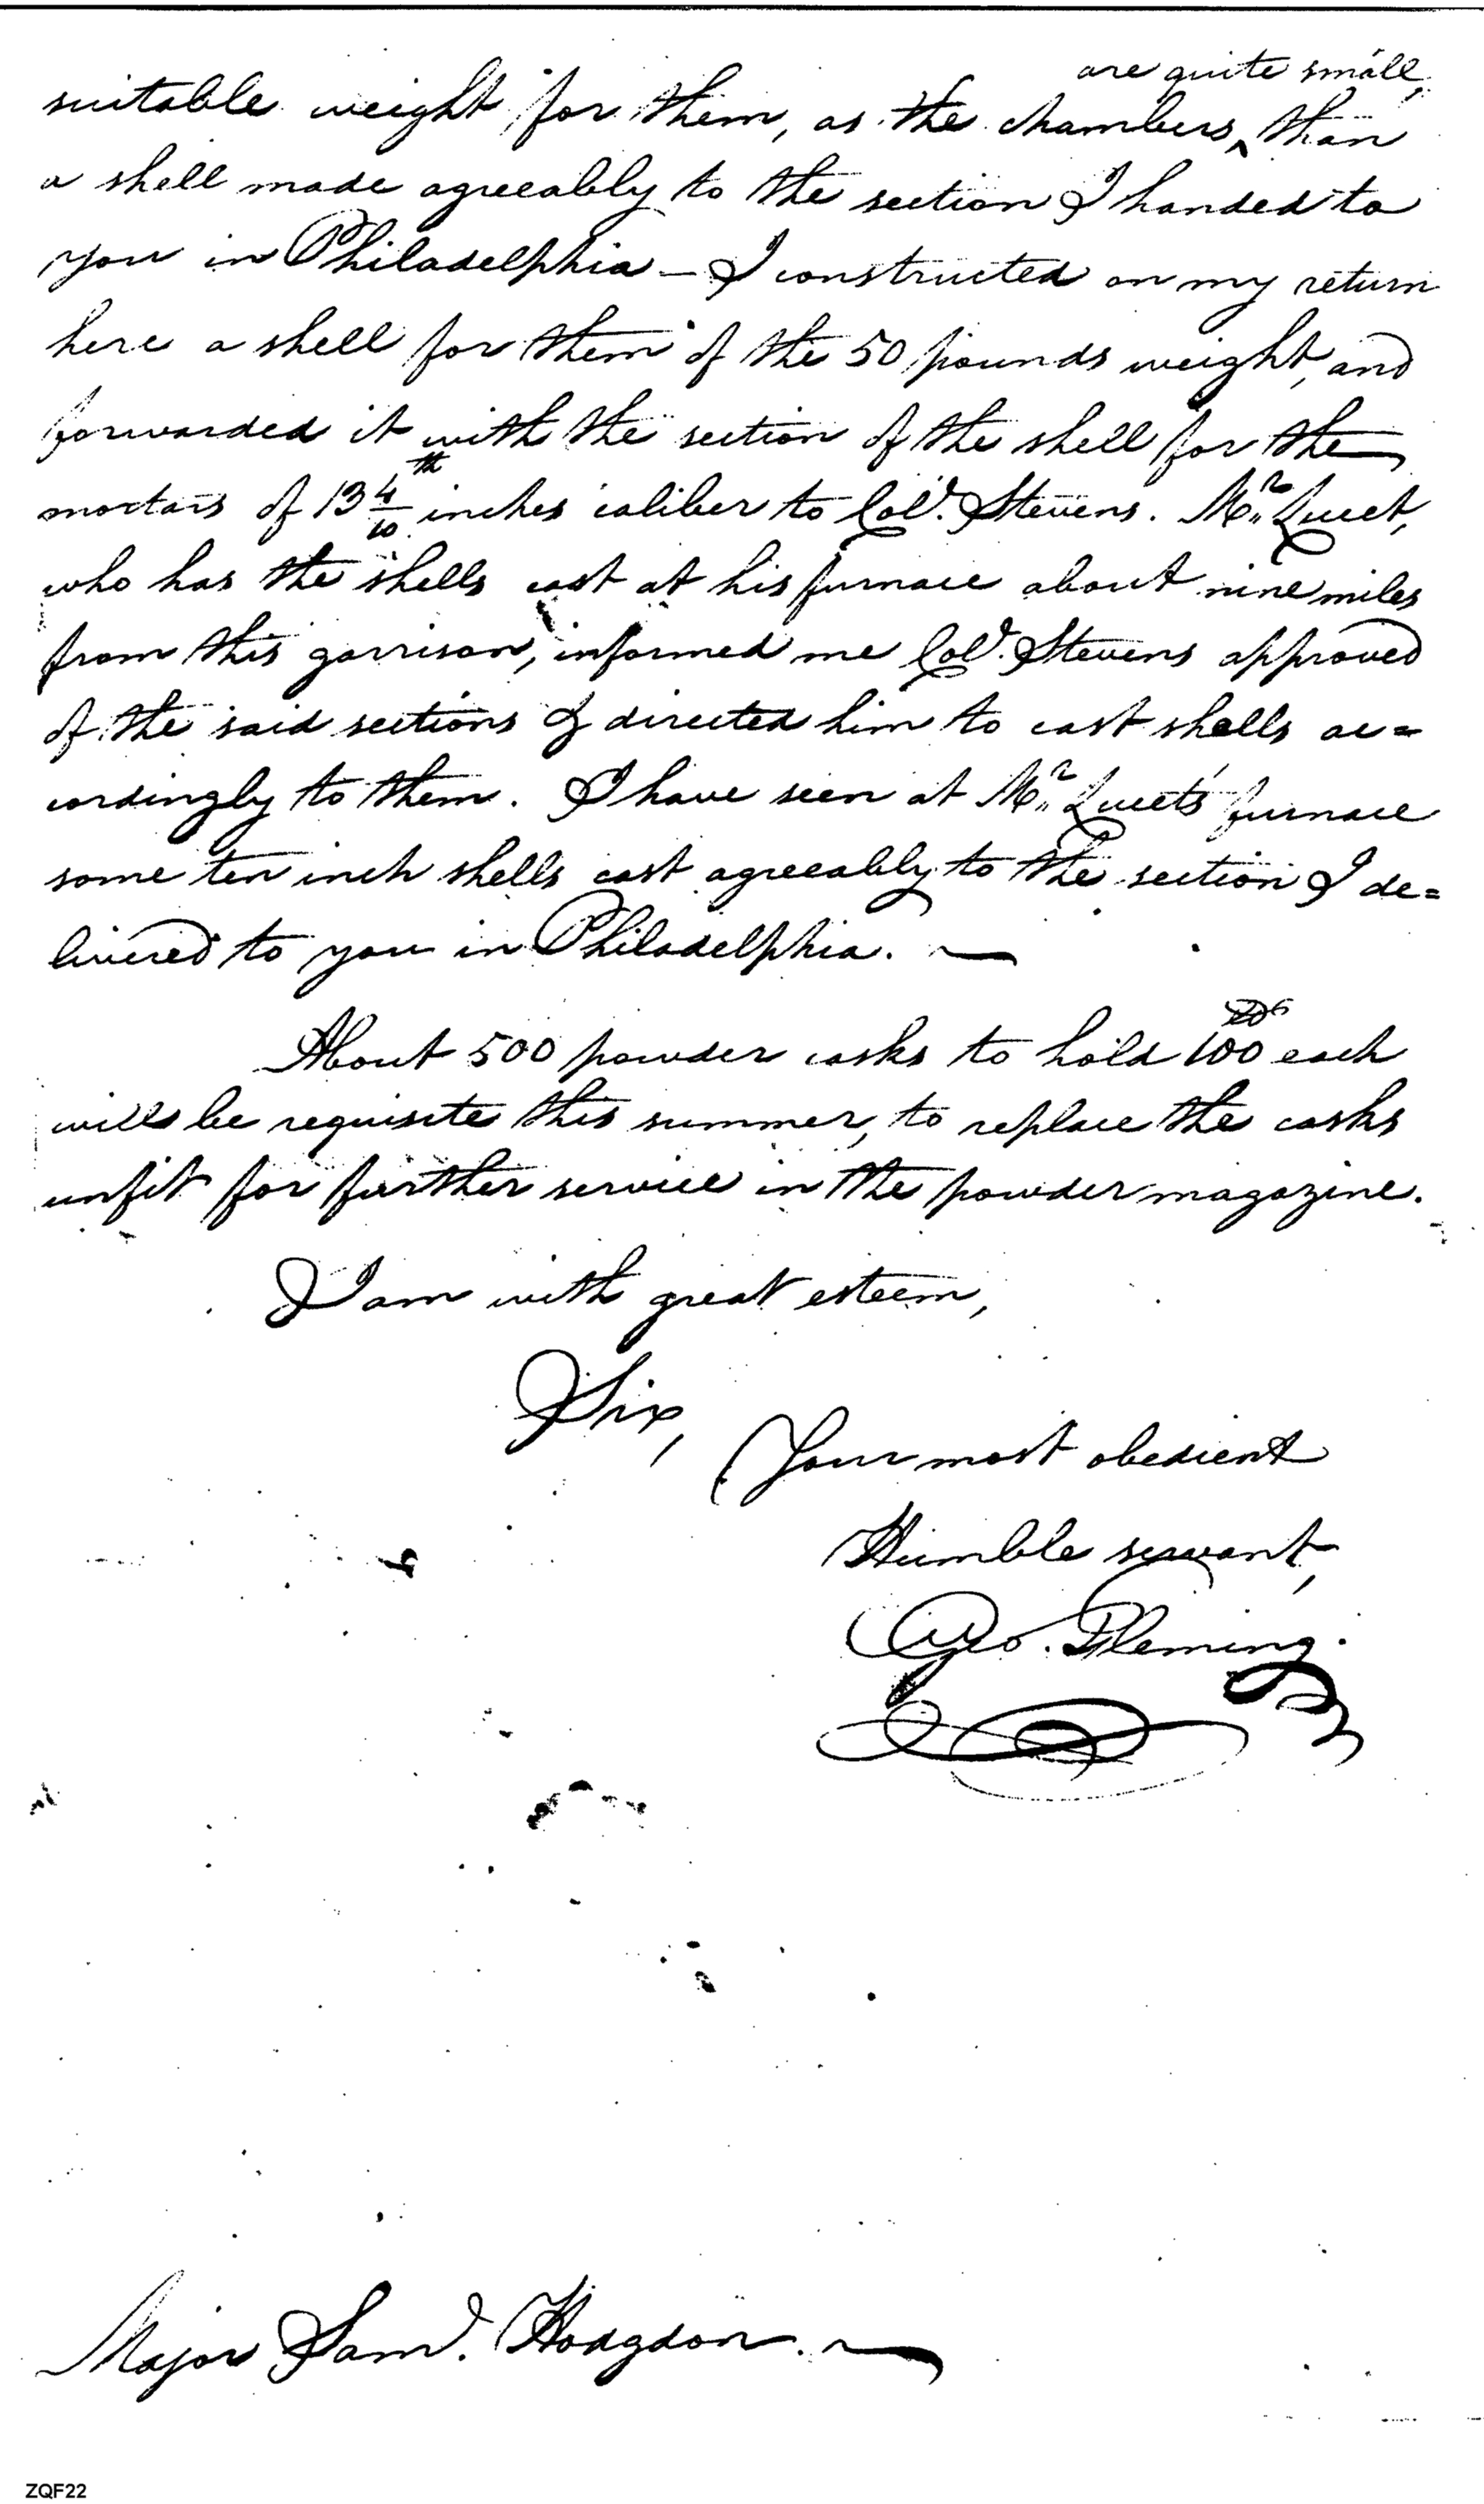 suitable weight for them, as the chambers ^ are quite small, than
a shell made agreeably to the section I handed to
you in Philadelphia — I constructed on my return
here a shell for them of the 50 pounds weight, and
forwarded it with the section of the shell for the
mortars of 13 4/10th inches caliber to Colo. Stevens. Mr. Queet,
who has the shells cast at his furnace about nine miles
from this garrison, informed me Colo. Stevens approved
of the said sections & directed him to cast shells ac=
cordingly to them. I have seen at Mr. Queet's furnace
some ten inch shells cast agreeably to the section I de=
livered to you in Philadelphia. —
About 500 powder casks to hold 100 each
will be requisite this summer, to replace the casks
unfit for further service in the powder magazine.
I am with great esteem,
Sir,
Your most obedient
Humble servant,
Geo. Fleming.
Major Saml. Hodgdon. —
ZQF22